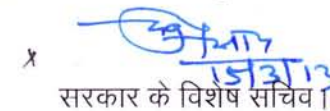 15/3/13
सरकार के विशेष सचिव